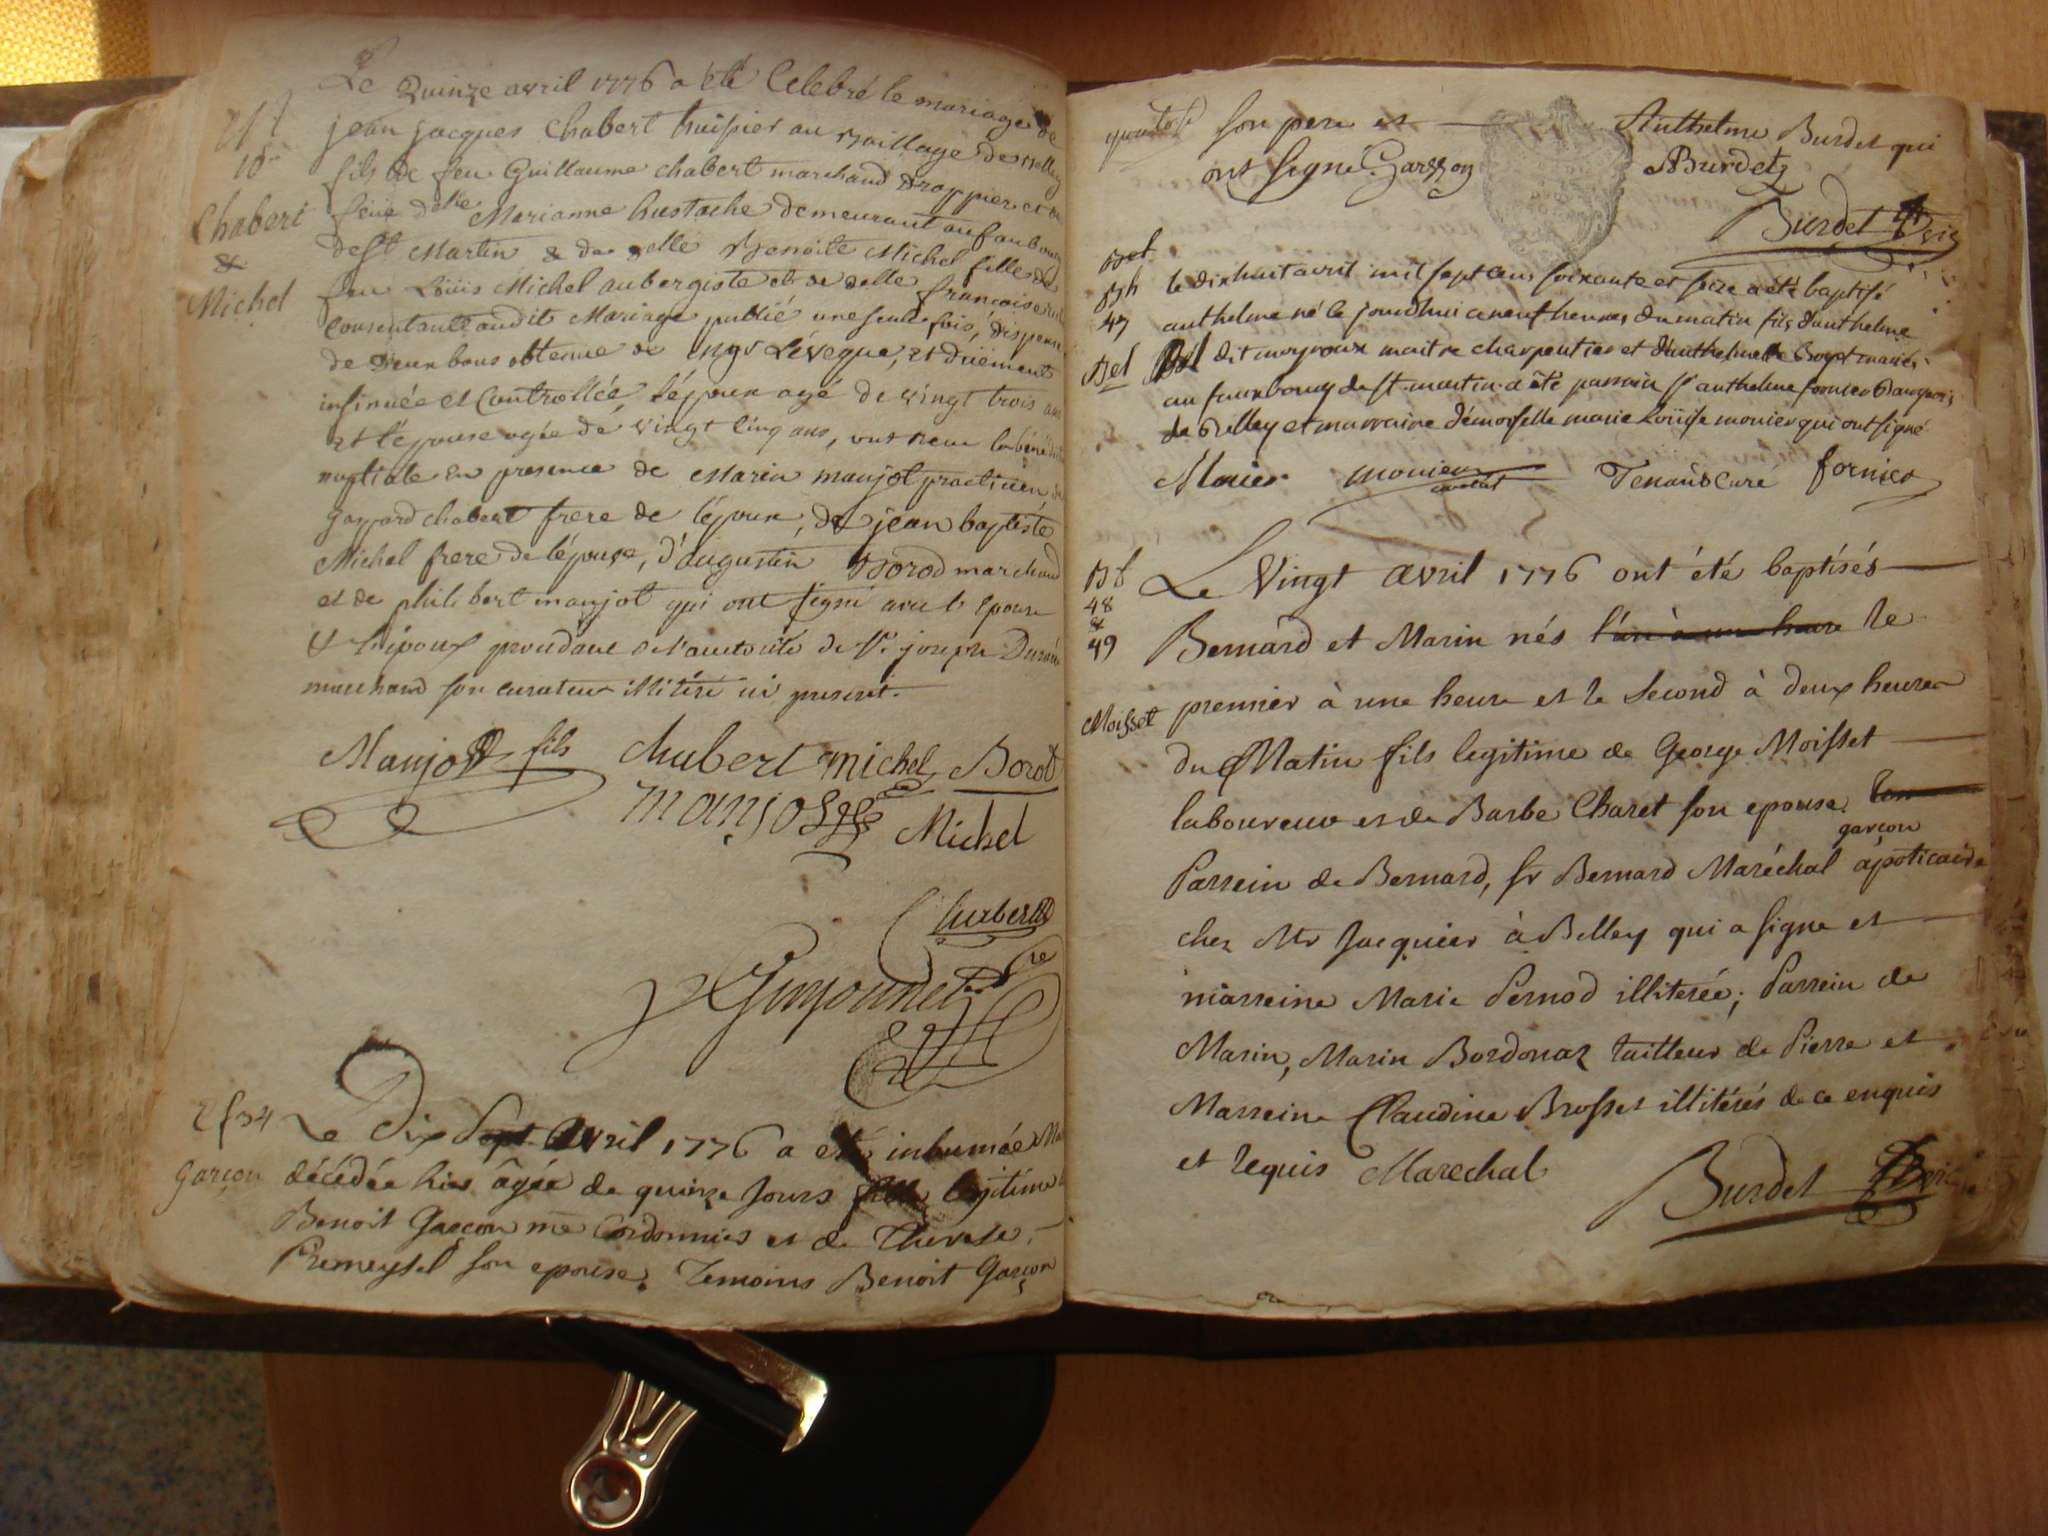 Le Quinze avril 1776 a été Celebré le mariage de
jean jacques Chabert huissier au Baillage de Belley
fils de feu Guillaume chabert marchand Drappier et de
feüe delle Marianne hustache demeurant au faubourg
de St Martin & de delle Benoite Michel fille de
feu Loüis Michel aubergiste et de delle françoise
Consentante audit Mariage publié une seule fois, dispense
de deux bans obtenüe de mgr L'évêque, et düement
insinuée et Controllée, l'époux agé de vingt trois ans
et l'épouse agée de vingt Cinq ans, ont recu la bene
nuptiale en presence de Marin manjot practicien de
Gaspard chabert frere de l'époux, de jean baptiste
Michel frere de l'épouse, d'augustin Borod marchand
et de philibert manjot qui ont signé avec l'epouse
& l'époux procedant de l'autorité de Sr joseph
marchand son curateur illitéré ici present.
10
Chabert
&
Michel
Manjot fils Chabert michel Borod
manjot Michel
Chabert
Guyonnet
34
Garçon
Le Dix Sept Avril 1776 a été inhumée
décédée hier âgée de quinze Jours fille legitime
Benoit Garçon me Cordonnier et de Therese
Premeysel son epouse. Temoins Benoit Garçon
son pere et Anthelme Burdet qui
ont signé. Garçon ABurdet
Burdet
47
Bel
le dixhuit avril mil sept cens soixante et seize a été baptisé
anthelme né le jourdhui a neuf heures du matin fils d'anthelme
Bel dit mayroux maitre charpentier et d'anthelmette Goyet mariés
au fauxbourg de st martin a été parrain sr anthelme fornier Bourgeois
de Belley et marraine démoiselle marie Loüise monier qui ont signé
Monier monier avocat Tenand Curé fornier
48
&
49
Moisset
Le Vingt Avril 1776 ont été baptisés
Bernard et Marin nés l'un à une heure le
premier à une heure et le Second à deux heures
du Matin fils legitime de George Moisset
laboureur et de Barbe Charet son epouse.
garçon
Parrein de Bernard, sr Bernard Maréchal apoticaire
chez Mr Jacquier à Belley qui a signe et
marreine Marie Pernod illiterée; Parrein de
Marin, Marin Bordonaz tailleur de Pierre et
Marreine Claudine Brosset illitérés de ce enquis
et requis Marechal
Burdet